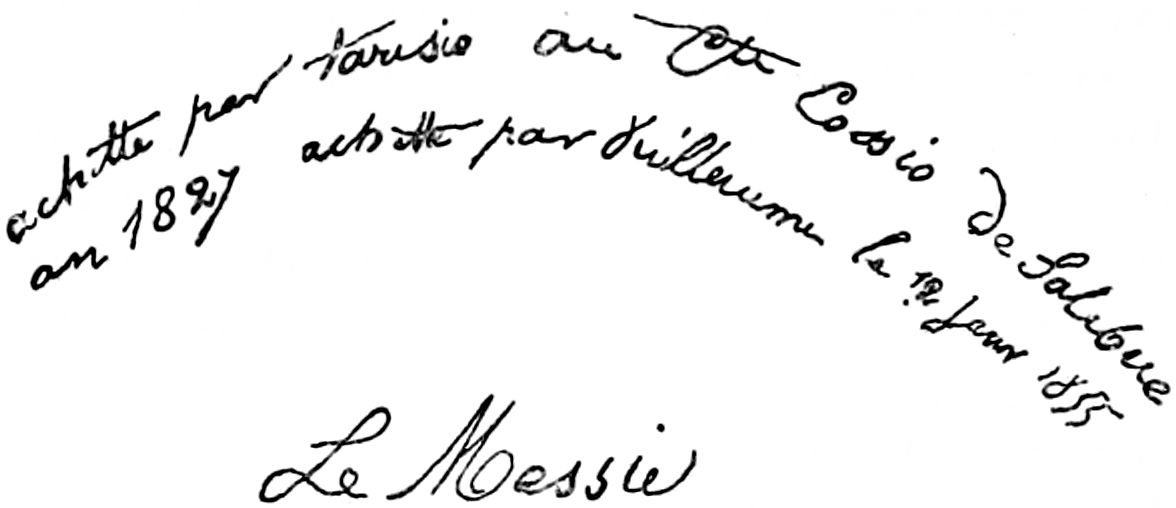 achette par tarisio au Cte Cossio de Salabue
an 1827 achette par Vuilleaume le 12 Janr 1855
Le Messie